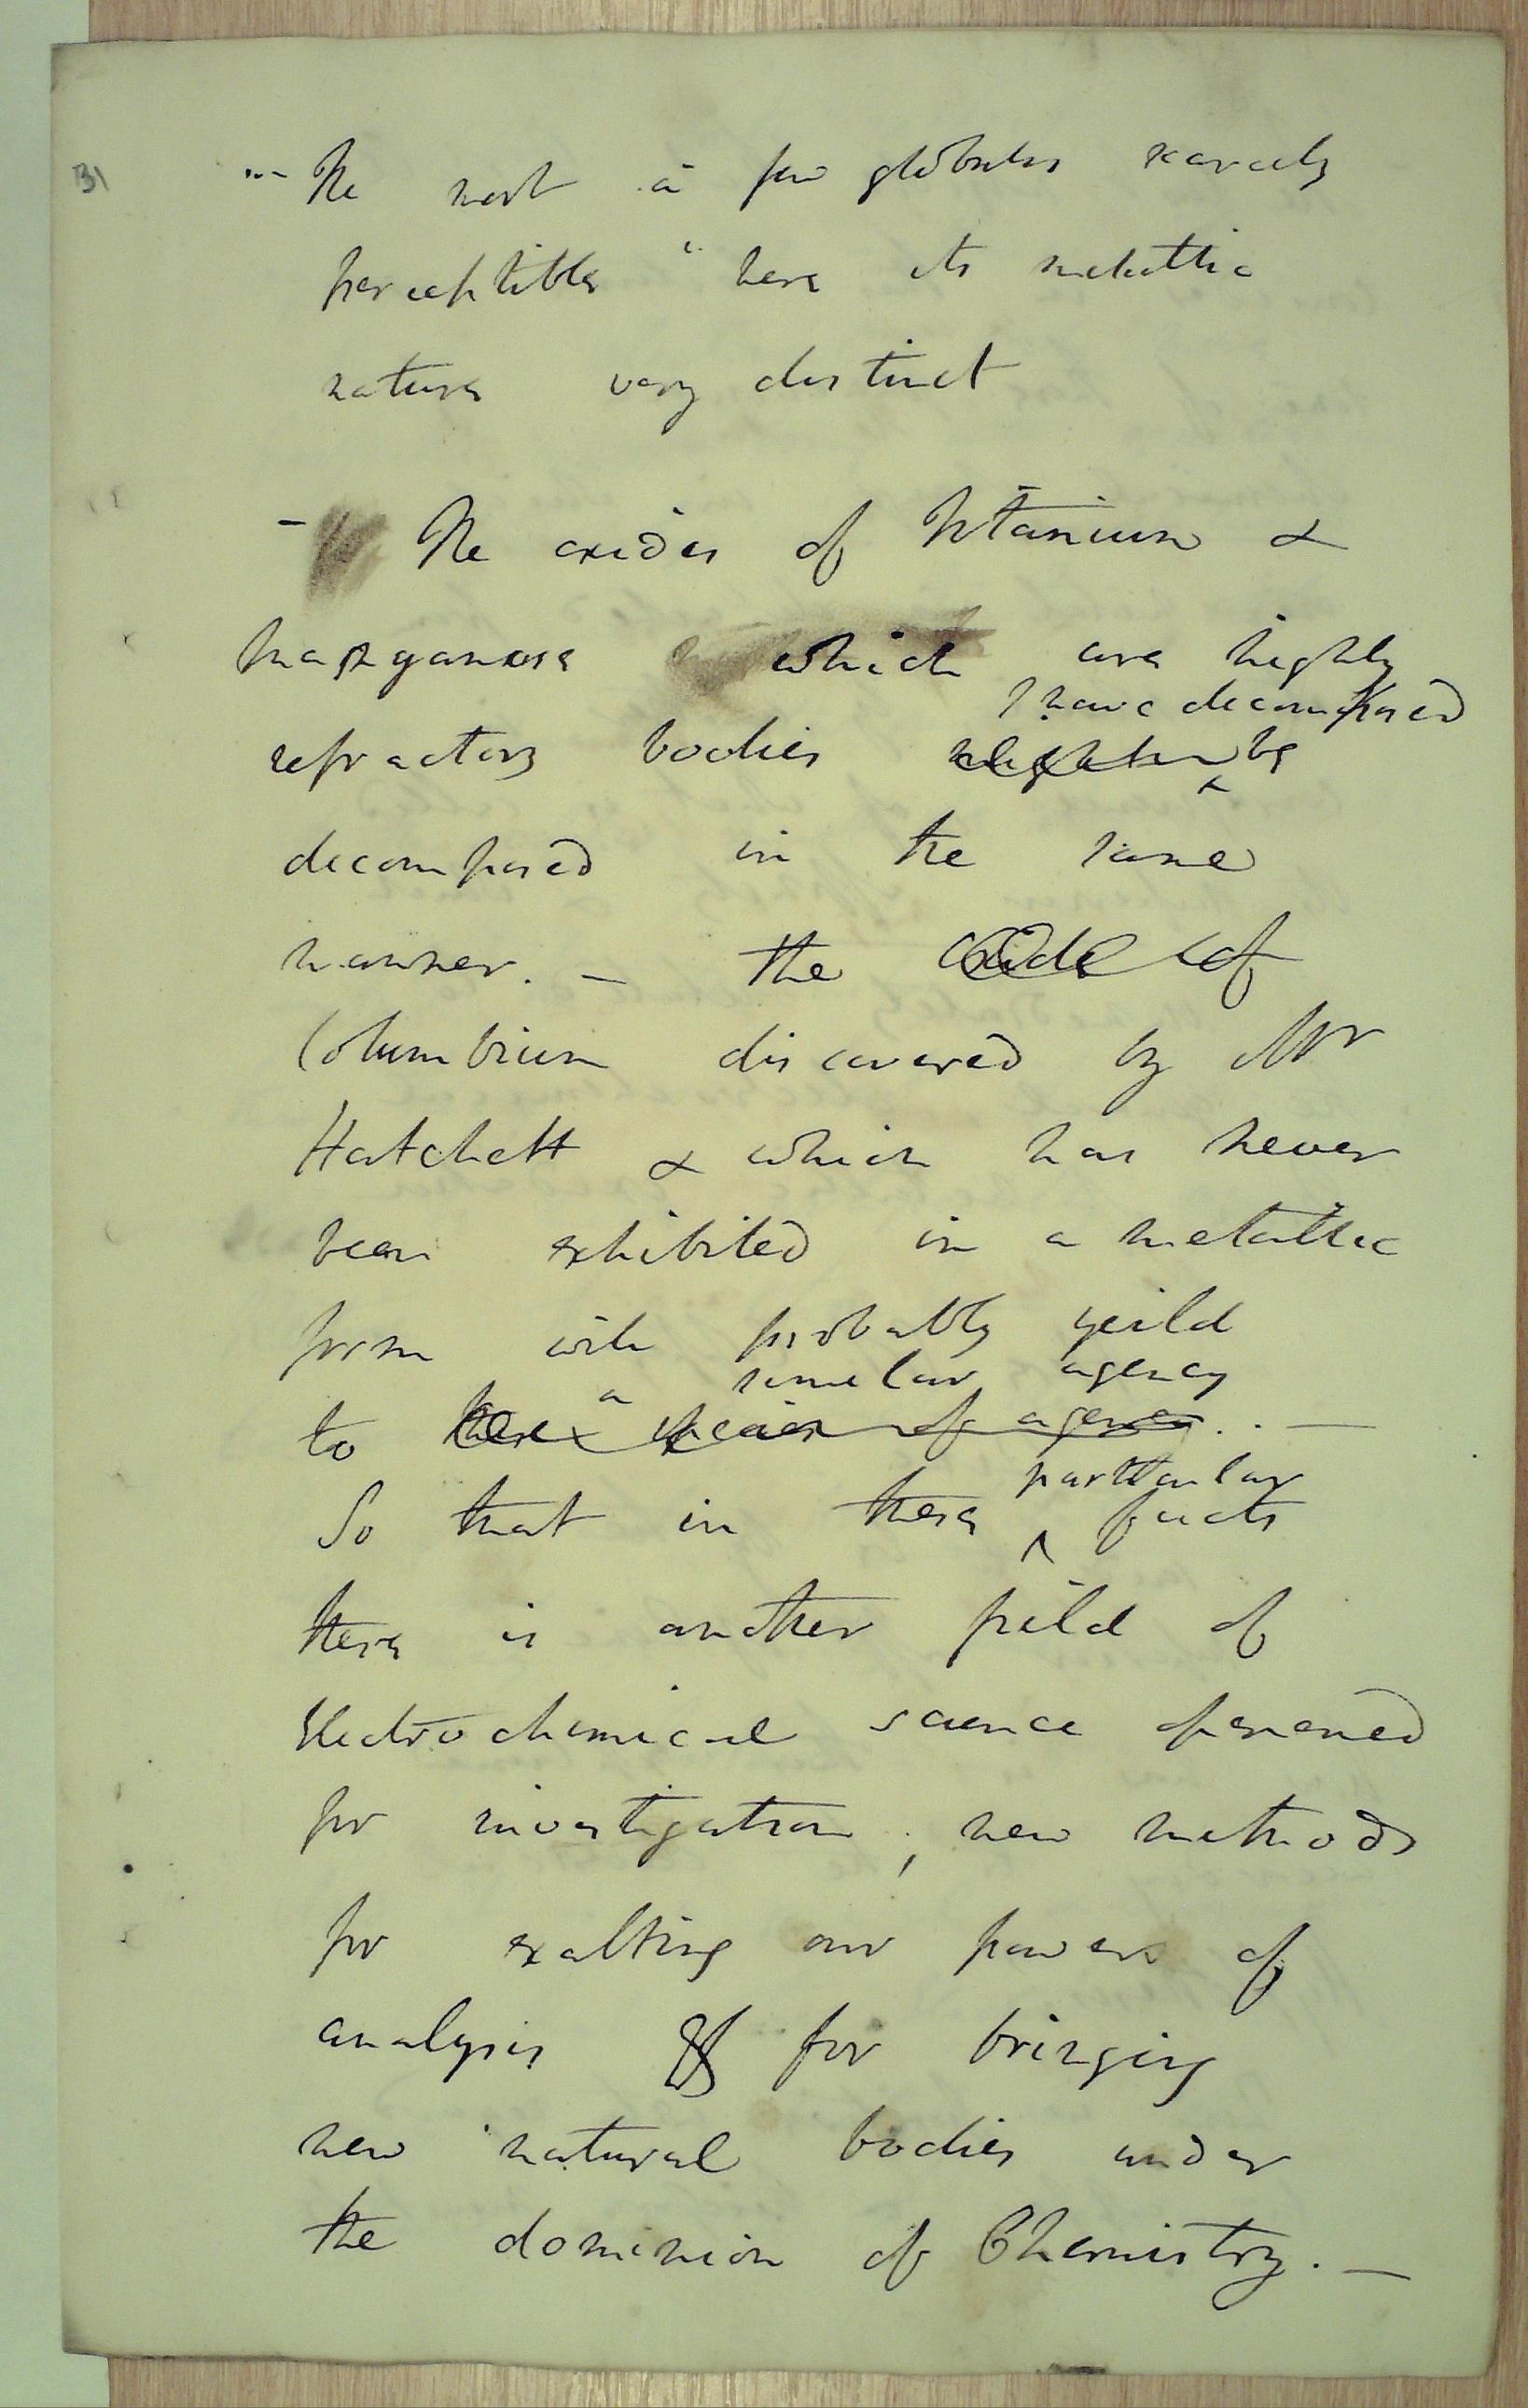 31
"- The next a few globules scarcely
perceptible " here its metallic
nature very distinct
- The oxides of Titanium &
Manganese which are highly
I have decomposed
refractory bodies be
decomposed in the same
manner. — the oxide of
Columbium discovered by Mr
Hatchett & which has never
been exhibited in a metallic
form will probably yeild
a similar agency
to these species of agencies . . —
particular
So that in these ^ facts
there is another feild of
Electrochemical science openened
for investigation; new methods
for exalting our powers of
analysis & for bringing
new natural bodies under
the dominion of Chemistry. —